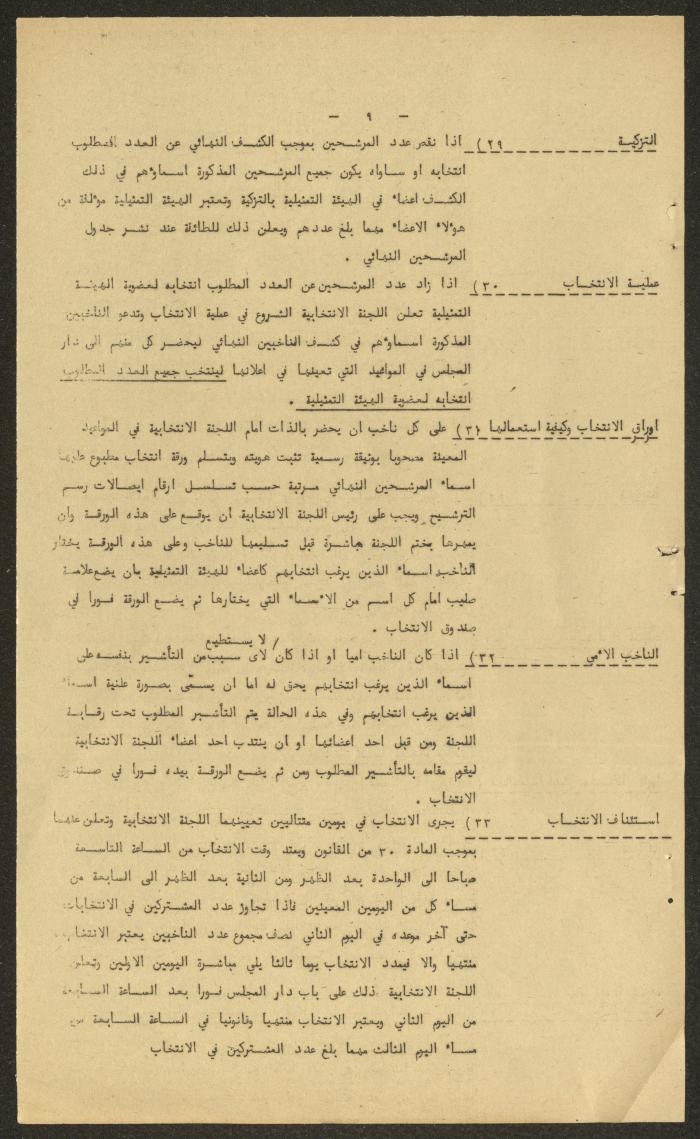 - ٩ -
التزكية ٢٩) اذا نقص عدد المرشحين بموجب الكشف النهائي عن العدد المطلوب
انتخابه او ساواه يكون جميع المرشحين المذكورة اسماؤهم في ذلك
الكشف اعضاء في الهيئة التمثيلية بالتزكية وتعتبر الهيئة التمثيلية مؤلفة من
هؤلاء الاعضاء مهما بلغ عددهم ويعلن ذلك للطائفة عند نشر جدول
المرشحين النهائي .
عملية الانتخاب ٣٠) اذا زاد عدد المرشحين عن العدد المطلوب انتخابه لعضوية الهيئة
التمثيلية تعلن اللجنة الانتخابية الشروع في عملية الانتخاب وتدعو الناخبين
المذكورة اسماؤهم في كشف الناخبين النهائي ليحضر كل منهم الى دار
المجلس في المواعيد التي تعينها في اعلانها لينتخب جميع العدد المطلوب
انتخابه لعضوية الهيئة التمثيلية .
اوراق الانتخاب وكيفية استعمالها ٣١) على كل ناخب ان يحضر بالذات امام اللجنة الانتخابية في المواعيد
المعينة مصحوبا بوثيقة رسمية تثبت هويته ويتسلم ورقة انتخاب مطبوع عليها
اسماء المرشحين النهائي مرتبة حسب تسلسل ارقام ايصالات رسم
الترشيح ويجب على رئيس اللجنة الانتخابية ان يوقع على هذه الورقة وان
يمهرها بختم اللجنة مباشرة قبل تسليمها للناخب وعلى هذه الورقة يختار
الناخب اسماء الذين يرغب انتخابهم كاعضاء للهيئة التمثيلية بان يضع علامة
صليب امام كل اسم من الاسماء التي يختارها ثم يضع الورقة فورا في
صندوق الانتخاب .
لا يستطيع
الناخب الامي ٣٢) اذا كان الناخب اميا او اذا كان / لاى سبب من التأشير بنفسه على
اسماء الذين يرغب انتخابهم يحق له اما ان يسمّى بصورة علنية اسماء
الذين يرغب انتخابهم وفي هذه الحالة يتم التأشير المطلوب تحت رقابة
اللجنة ومن قبل احد اعضائها او ان ينتدب احد اعضاء اللجنة الانتخابية
ليقوم مقامه بالتأشير المطلوب ومن ثم يضع الورقة بيده فورا في صندوق
الانتخاب .
استئناف الانتخاب ٣٣) يجرى الانتخاب في يومين متتاليين تعيينهما اللجنة الانتخابية وتعلن عنهما
بموجب المادة ٣٠ من القانون ويمتد وقت الانتخاب من الساعة التاسعة
صباحا الى الواحدة بعد الظهر ومن الثانية بعد الظهر الى السابعة من
مساء كل من اليومين المعينين فاذا تجاوز عدد المشتركين في الانتخابات
حتى آخر موعده في اليوم الثاني نصف مجموع عدد الناخبين يعتبر الانتخاب
منتهيا والا فيمدد الانتخاب يوما ثالثا يلي مباشرة اليومين الاولين وتعلن
اللجنة الانتخابية ذلك على باب دار المجلس فورا بعد الساعة السابعة
من اليوم الثاني ويعتبر الانتخاب منتهيا وقانونيا في الساعة السابعة من
مساء اليوم الثالث مهما بلغ عدد المشتركين في الانتخاب